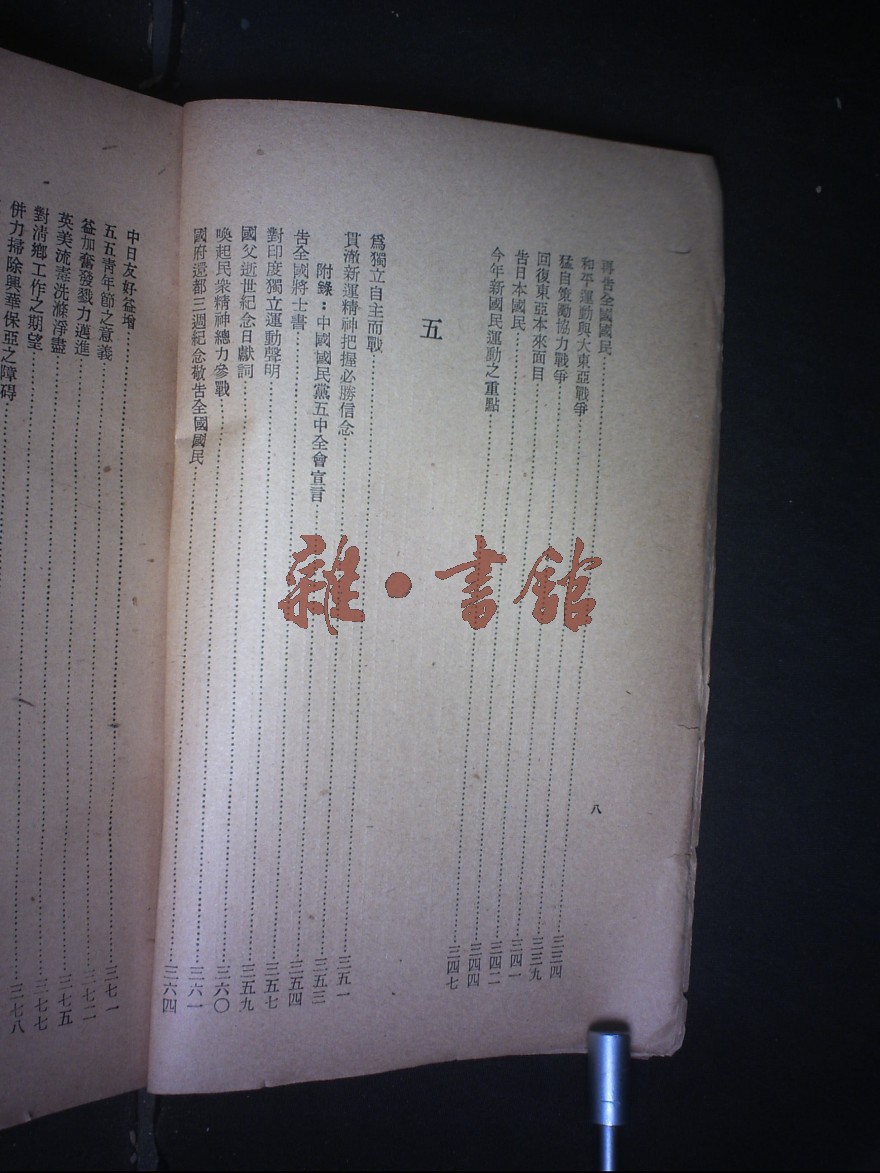 八
再告全國國民……三三四
和平運動與大東亞戰爭……三三九
猛自策勵協力戰爭……三四一
回復東亞本來面目……三四二
告日本國民……三四四
今年新國民運動之重點……三四七
五
爲獨立自主而戰……三五一
貫澈新運精神把握必勝信念……三五三
附錄：中國國民黨五中全會宣言……三五四
告全國將士書……三五七
對印度獨立運動聲明……三五九
國父逝世紀念日獻詞……三六〇
喚起民衆精神總力參戰……三六一
國府還都三週紀念敬告全國國民……三六四
中日友好益增……三七一
五五靑年節之意義……三七二
益加奮發戮力邁進……三七五
英美流毒洗滌淨盡……三七七
對淸鄉工作之期望……三七八
併力掃除興華保亞之障碍
雜·書館